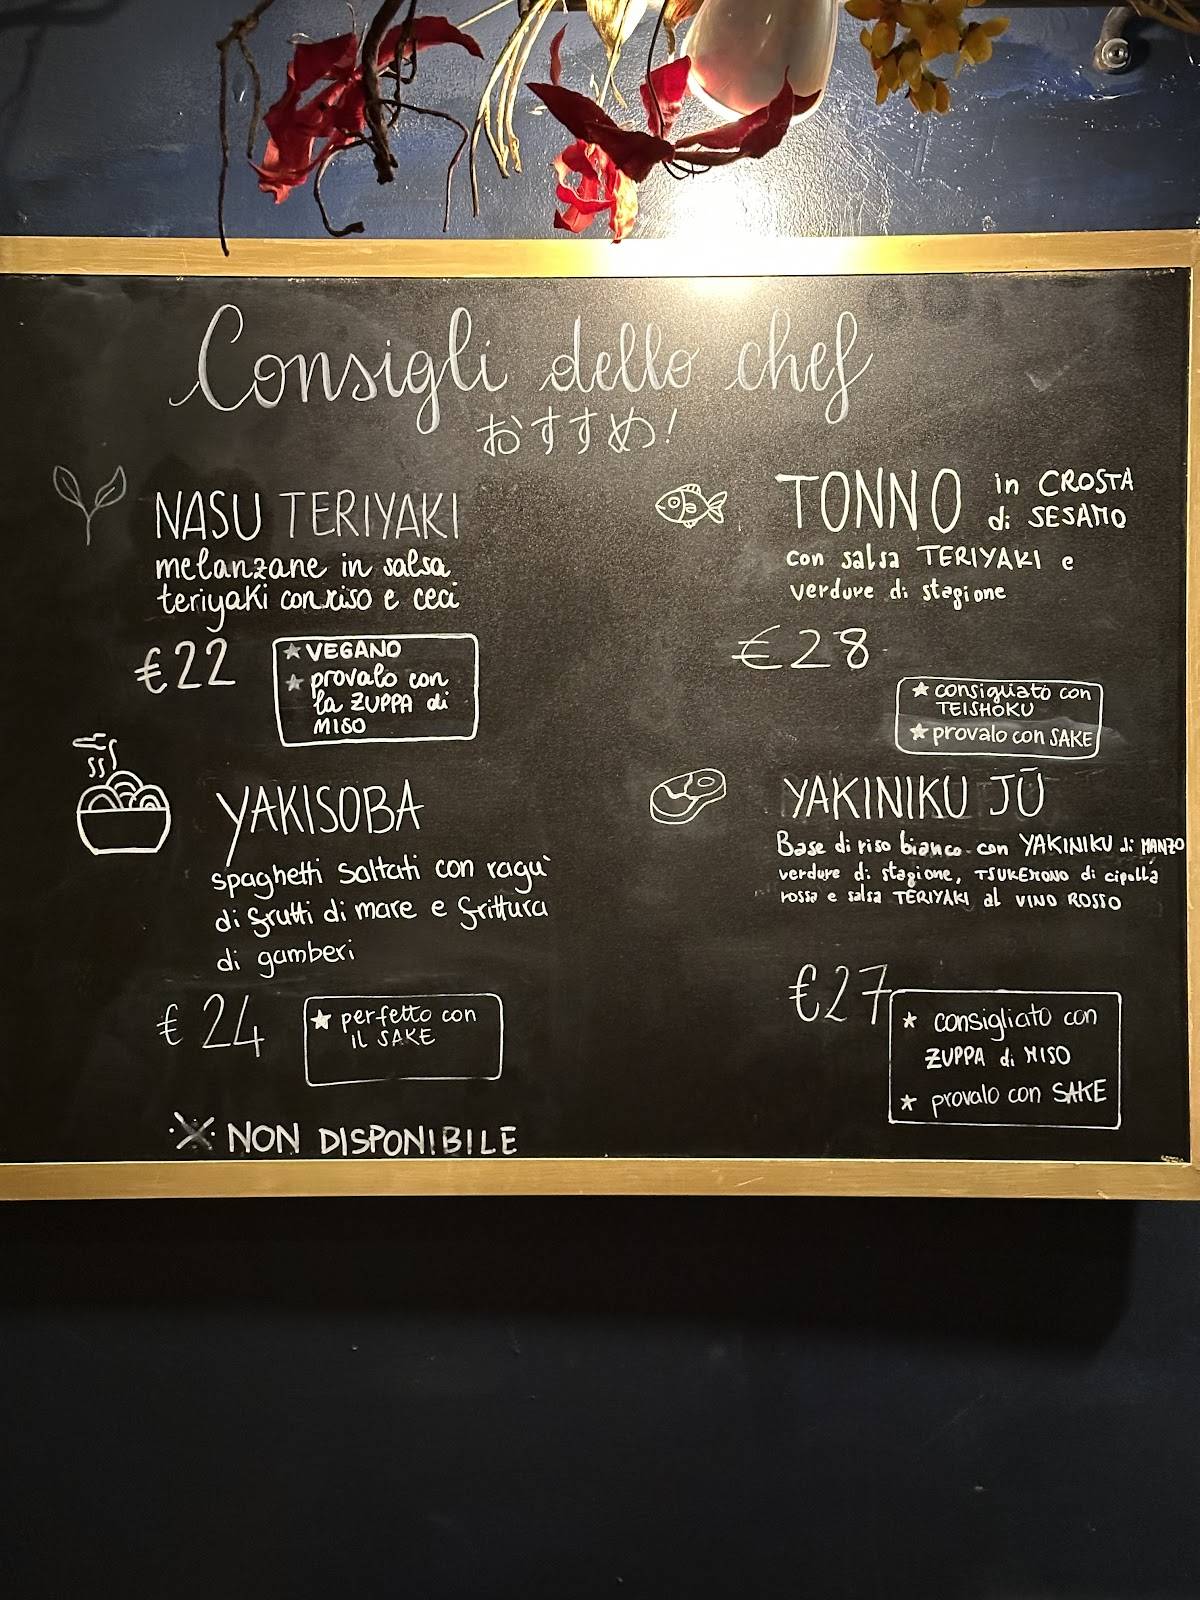 Consigli dello chef
おすすめ!
NASU TERIYAKI
melanzane in salsa
teriyaki con riso e ceci
€22
★ VEGANO
★ provalo con
la ZUPPA di
MISO
YAKISOBA
spaghetti saltati con ragù
di frutti di mare e frittura
di gamberi
€ 24
★ perfetto con
il SAKE
NON DISPONIBILE
TONNO in CROSTA
di SESAMO
con salsa TERIYAKI e
verdure di stagione
€28
★ consigliato con
TEISHOKU
★ provalo con SAKE
YAKINIKU JŪ
Base di riso bianco con YAKINIKU di MANZO
verdure di stagione, TSUKEMONO di cipolla
rossa e salsa TERIYAKI al VINO ROSSO
€27
★ consigliato con
ZUPPA di MISO
★ provalo con SAKE